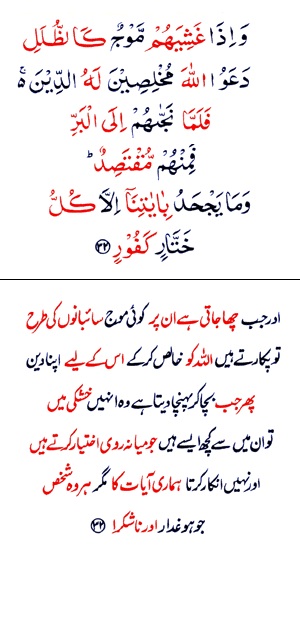 وَ اِذَا غَشِيَهُمْ مَّوْجٌ كَالظُّلَلِ
دَعَوُا اللّٰهَ مُخْلِصِيْنَ لَهُ الدِّيْنَ ۚ۬
فَلَمَّا نَجّٰىهُمْ اِلَى الْبَرِّ
فَمِنْهُمْ مُّقْتَصِدٌ ؕ
وَمَا يَجْحَدُ بِاٰيٰتِنَاۤ اِلَّا كُلُّ
خَتَّارٍ كَفُوْرٍ ﴿۳۲﴾
اور جب چھا جاتی ہے ان پر کوئی موج سائبانوں کی طرح
تو پکارتے ہیں اللہ کو خالص کر کے اس کے لیے اپنا دین
پھر جب بچا کر پہنچا دیتا ہے وہ انہیں خشکی میں
تو ان میں سے کچھ ایسے ہیں جو میانہ روی اختیار کرتے ہیں
اور نہیں انکار کرتا ہماری آیات کا مگر ہر وہ شخص
جو ہو غدار اور ناشکرا ﴿۳۲﴾